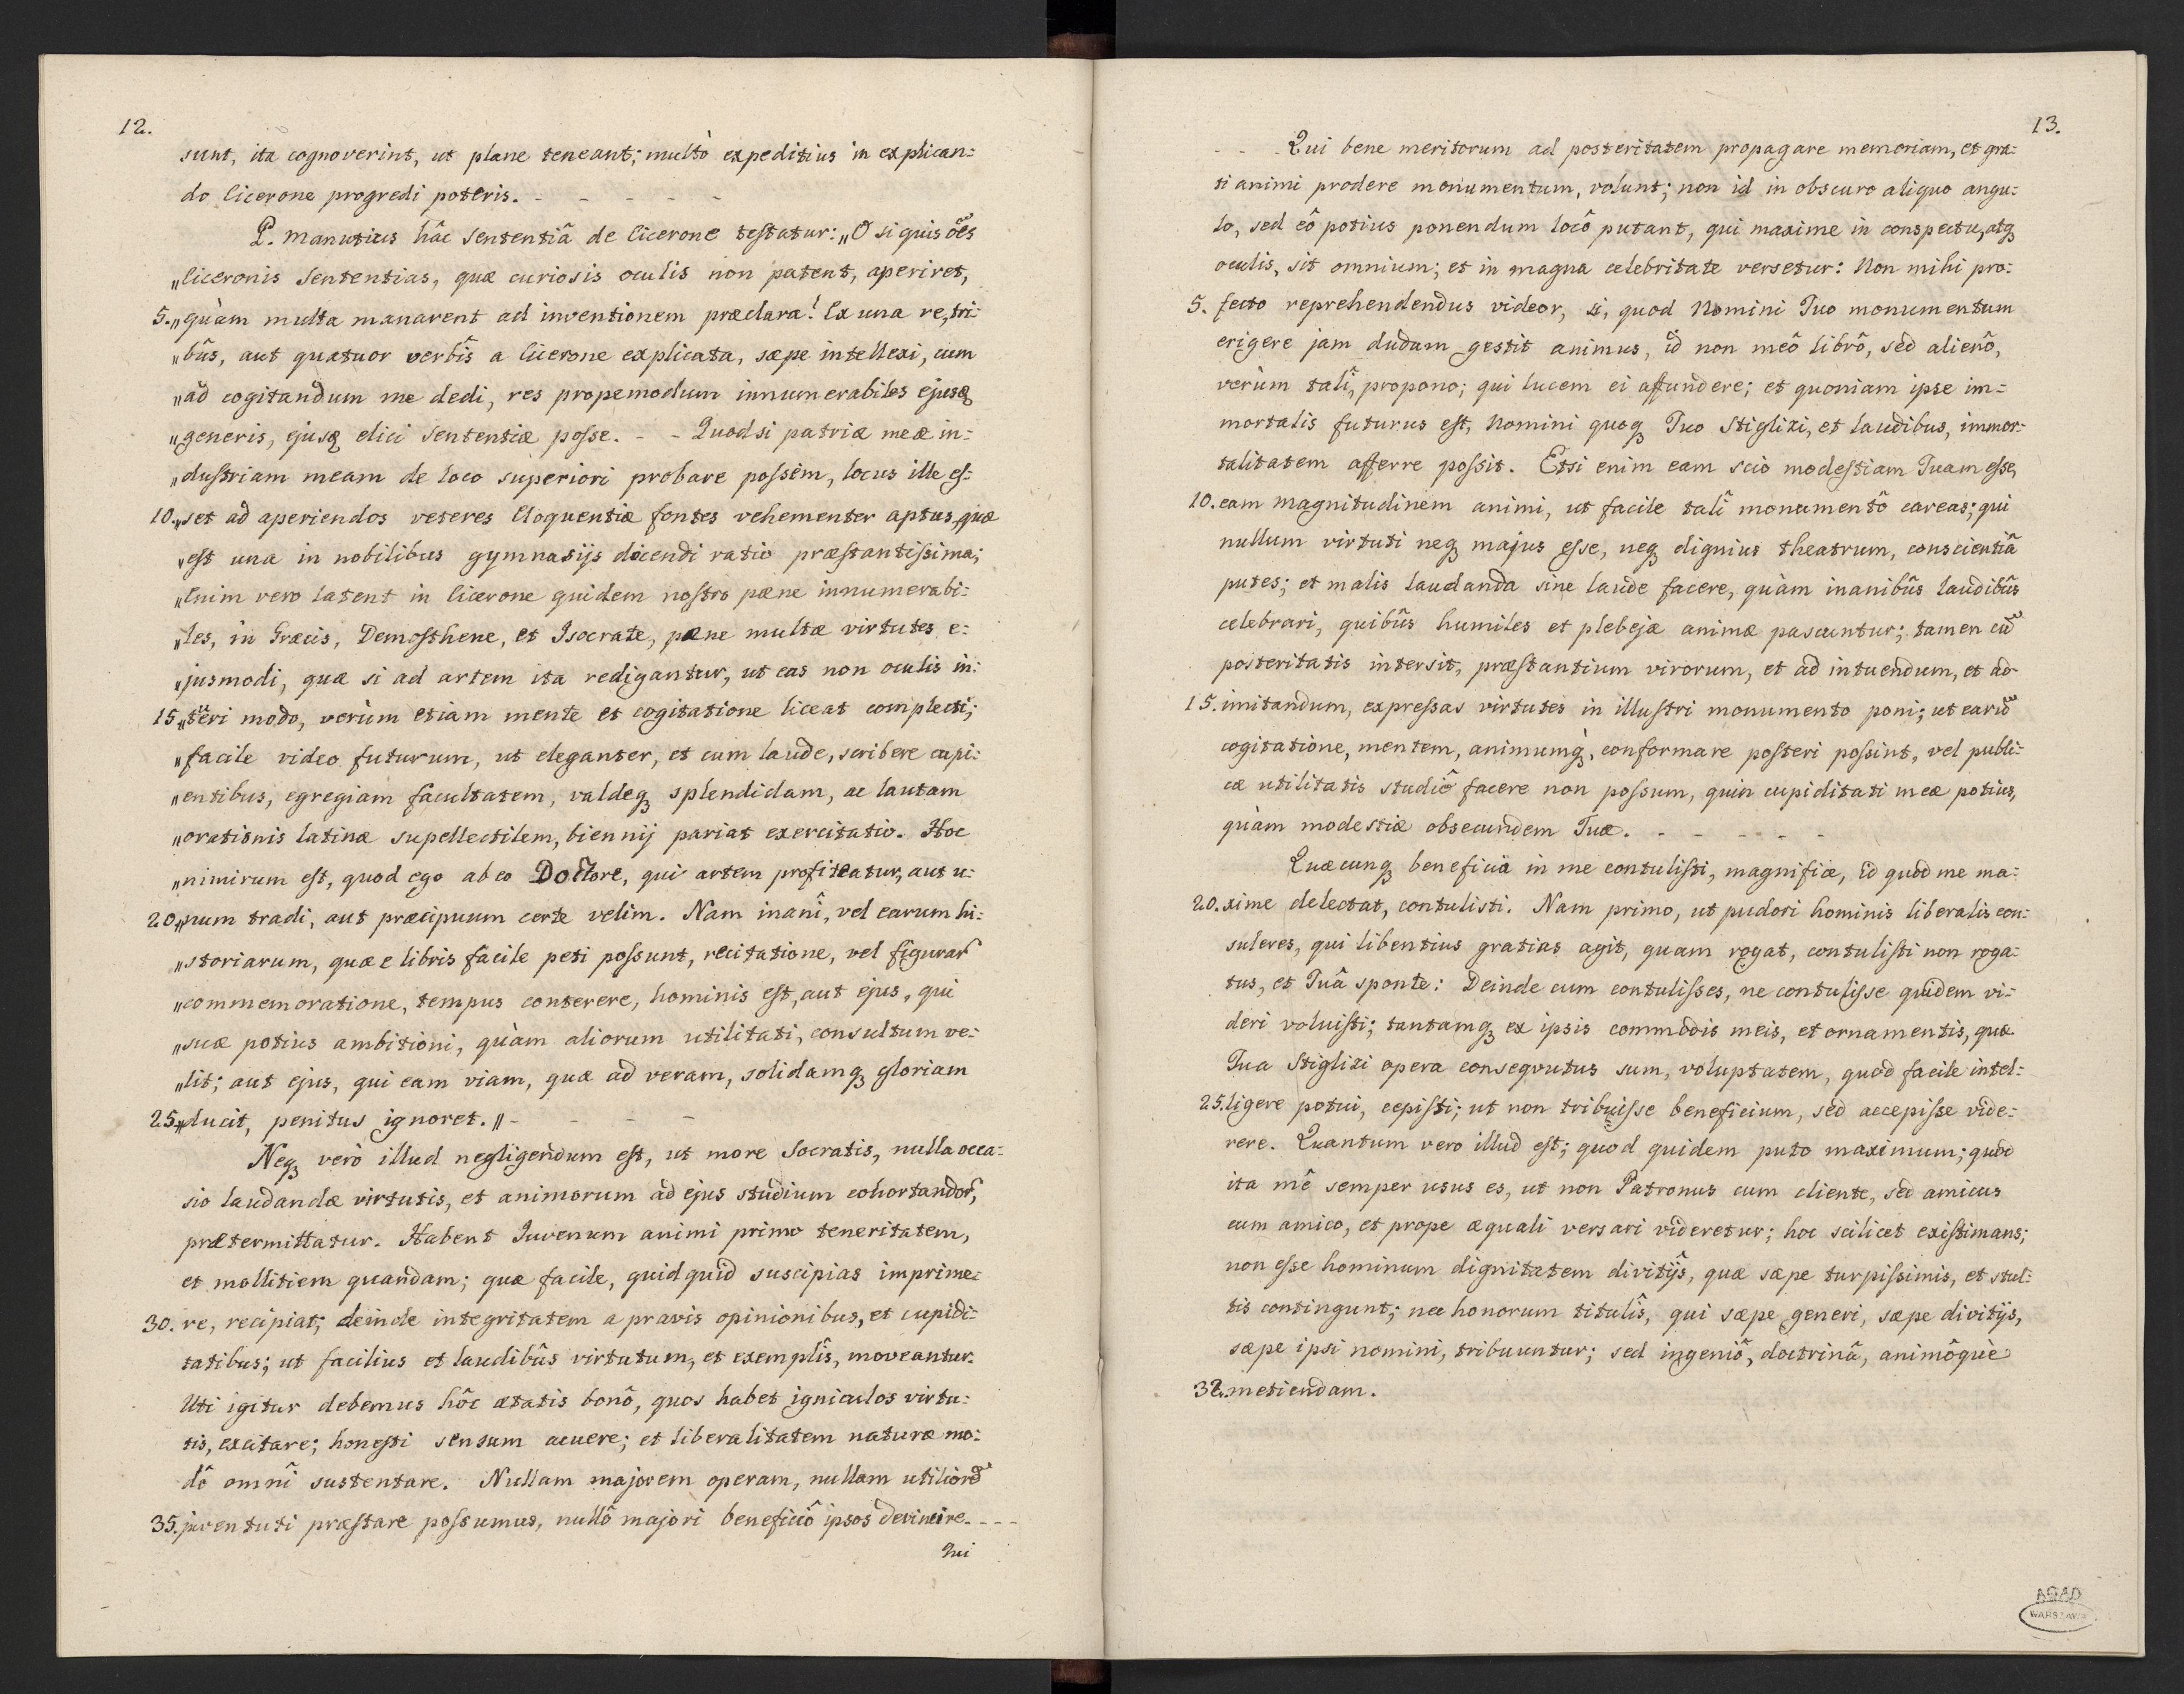 12.
sunt, ita cognoverint, ut plane teneant; multò expeditius in explican=
do Cicerone progredi poteris. - - - - - -
P. Manutius hâc sententiâ de Cicerone testatur: „O si quis oẽs
„Ciceronis Sententias, quæ curiosis oculis non patent, aperiret,
5. „quàm multa manarent ad inventionem præclara! Ex una re, tri=
„bûs, aut quatuor verbîs a Cicerone explicata, sæpe intellexi, cum
„ad cogitandum me dedi, res propemodum innumerabiles ejusq
„generis, ejusq elici Sententiæ posse. - - Quodsi patriæ meæ in=
„dustriam meam de loco superiori probare possem, locus ille es=
10. „set ad aperiendos veteres Eloquentiæ fontes vehementer aptus, quæ
„est una in nobilibus gymnasijs docendi ratio præstantissima;
„Enim vero latent in Cicerone quidem nostro pæne innumerabi=
„les, in Græcis, Demosthene, et Isocrate, pæne multæ virtutes e=
„jusmodi, quæ si ad artem ita redigantur, ut eas non oculis in=
15. „tueri modo, verùm etiam mente et cogitatione liceat complecti;
„facile video futurum, ut eleganter, et cum laude, scribere cupi=
„entibus, egregiam facultatem, valdeq splendidam, ac lautam
„orationis latinæ supellectilem, biennij pariat exercitatio. Hoc
„nimirum est, quod ego ab eo Doctore, qui artem profiteatur, aut u=
20. „num tradi, aut præcipuum certe velim. Nam inanî, vel earum hi=
„storiarum, quæ e libris facile peti possunt, recitatione, vel figurar
„commemoratione, tempus conterere, hominis est, aut ejus, qui
„suæ potius ambitioni, quàm aliorum utilitati, consultum ve=
„lit; aut ejus, qui eam viam, quæ ad veram, solidamq gloriam
25. „ducit, penitus ignoret.„ - - - -
Neq verò illud negligendum est, ut more Socratis, nulla occa=
sio laudandæ virtutis, et animorum ad ejus studium cohortandor,
prætermittatur. Habent Juvenum animi primo teneritatem,
et mollitiem quandam; quæ facile, quidquid suscipias imprime=
30. re, recipiat; deinde integritatem a pravis opinionibus, et cupidi=
tatibus; ut facilius et laudibûs virtutum, et exemplîs, moveantur.
Uti igitur debemus hôc ætatis bonô, quos habet igniculos virtu=
tis, excitare; honesti sensum acuere; et liberalitatem naturæ mo=
dô omnî sustentare. Nullam majorem operam, nullam utiliorẽ
35. juventuti præstare possumus, nullô majori beneficiô ipsos devincire. - - - -
Qui
13.
- - - Qui bene meritorum ad posteritatem propagare memoriam, et gra=
ti animi prodere monumentum, volunt; non id in obscuro aliquo angu=
lo, sed eô potius ponendum locô putant, qui maxime in conspectu, atq
oculis, sit omnium; et in magna celebritate versetur: Non mihi pro=
5. fecto reprehendendus videor, si, quod Nomini Tuo monumentum
erigere jam dudum gestit animus, id non meô librô, sed alienô,
verùm talî, propono; qui lucem ei affundere; et quoniam ipse im=
mortalis futurus est, Nomini quoq Tuo Stiglizi, et laudibus, immor=
talitatem afferre possit. Etsi enim eam scio modestiam Tuam esse,
10. eam magnitudinem animi, ut facile talî monumentô careas; qui
nullum virtuti neq majus esse, neq dignius theatrum, conscientiâ
putes; et malis laudanda sine laude facere, quàm inanibûs laudibûs
celebrari, quibûs humiles et plebejæ animæ pascuntur; tamen cũ
posteritatis intersit, præstantium virorum, et ad intuendum, et ad
15. imitandum, expressas virtutes in illustri monumento poni; ut earũ
cogitatione, mentem, animumq, conformare posteri possint, vel publi=
cæ utilitatis studiô facere non possum, quin cupiditati meæ potius,
quàm modestiæ obsecundem Tuæ. - - - - - -
Quæcunq beneficia in me contulisti, magnifice, id quod me ma=
20. xime delectat, contulisti. Nam primo, ut pudori hominis liberalis con=
suleres, qui libentius gratias agit, quam rogat, contulisti non roga=
tus, et Tuâ sponte: Deinde cum contulisses, ne contulisse quidem vi=
deri voluisti; tantamq ex ipsis commodis meis, et ornamentis, quæ
Tua Stiglizi opera consequutus sum, voluptatem, quod facile intel=
25. ligere potui, cepisti; ut non tribuisse beneficium, sed accepisse vide=
rere. Quantum vero illud est; quod quidem puto maximum; quod
ita mê semper usus es, ut non Patronus cum cliente, sed amicus
cum amico, et prope æquali versari videretur; hoc scilicet existimans;
non esse hominum dignitatem divitijs, quæ sæpe turpissimis, et stul=
tis contingunt; nec honorum titulîs, qui sæpe generi, sæpe divitijs,
sæpe ipsi nomini, tribuuntur; sed ingeniô, doctrinâ, animôque
32. metiendam.
AGAD
WARSZAWA